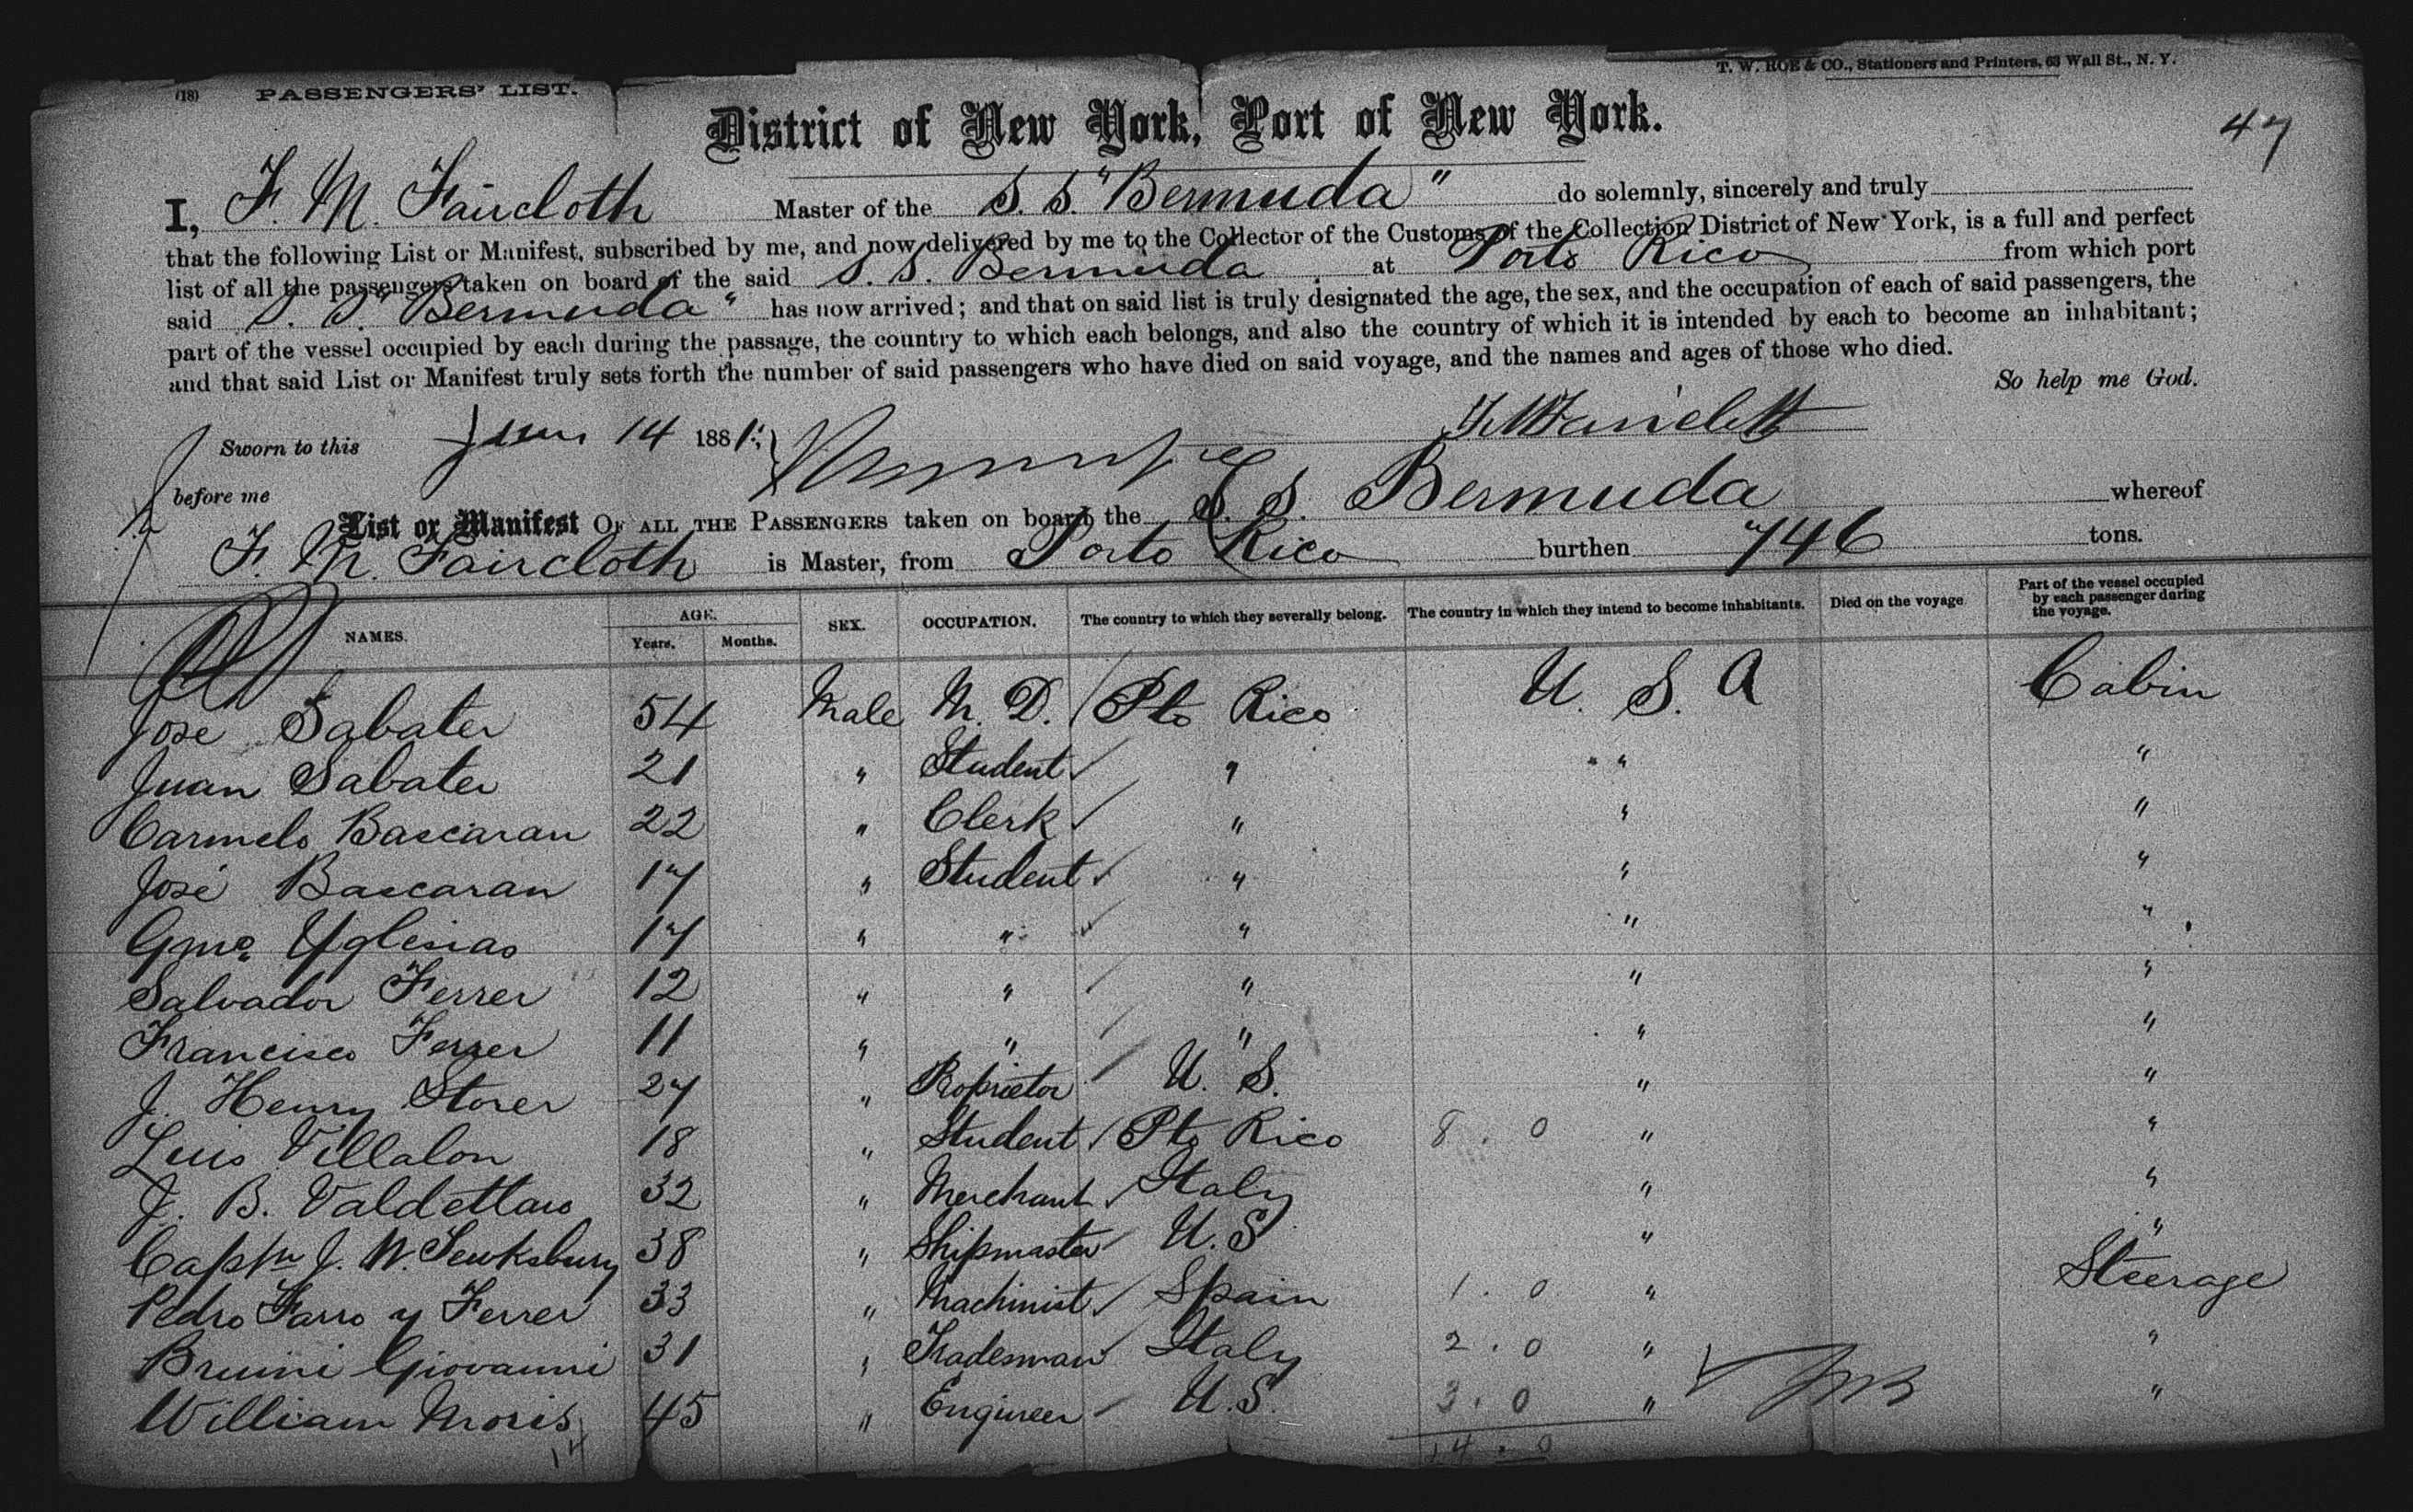 (18) PASSENGERS' LIST.
T. W. ROE & CO., Stationers and Printers, 63 Wall St., N. Y.
District of New York, Port of New York.
47
I, F. M. Faircloth Master of the S. S. "Bermuda" do solemnly, sincerely and truly
that the following List or Manifest, subscribed by me, and now delivered by me to the Collector of the Customs of the Collection District of New York, is a full and perfect
list of all the passengers taken on board of the said S. S. Bermuda at Porto Rico from which port
said S. S. "Bermuda" has now arrived; and that on said list is truly designated the age, the sex, and the occupation of each of said passengers, the
part of the vessel occupied by each during the passage, the country to which each belongs, and also the country of which it is intended by each to become an inhabitant;
and that said List or Manifest truly sets forth the number of said passengers who have died on said voyage, and the names and ages of those who died.
So help me God.
Sworn to this June 14 1881
before me
List or Manifest OF ALL THE PASSENGERS taken on board the S. S. Bermuda whereof
F. M. Faircloth is Master, from Porto Rico burthen 746 tons.
NAMES. AGE. Years. Months. SEX. OCCUPATION. The country to which they severally belong. The country in which they intend to become inhabitants. Died on the voyage Part of the vessel occupied by each passenger during the voyage.
Jose Sabater 54 Male M. D. Pto Rico U. S. A Cabin
Juan Sabater 21 " Student " " " "
Carmelo Bascaran 22 " Clerk " " "
José Bascaran 17 " Student " " "
Gmo Yglesias 17 " " " " "
Salvador Ferrer 12 " " " " "
Francisco Ferrer 11 " " " " "
J. Henry Storer 27 " Proprietor U. S. " "
Luis Villalon 18 " Student Pto Rico 8 . 0 " "
J. B. Valdettaro 32 " Merchant Italy " "
Captn J. W. Tewksbury 38 " Shipmaster U. S. " "
Pedro Farro y Ferrer 33 " Machinist Spain 1 . 0 " Steerage
Bruini Giovanni 31 " Tradesman Italy 2 . 0 " "
William Moris 45 " Engineer U. S. 3 . 0 " "
14 14 . 0